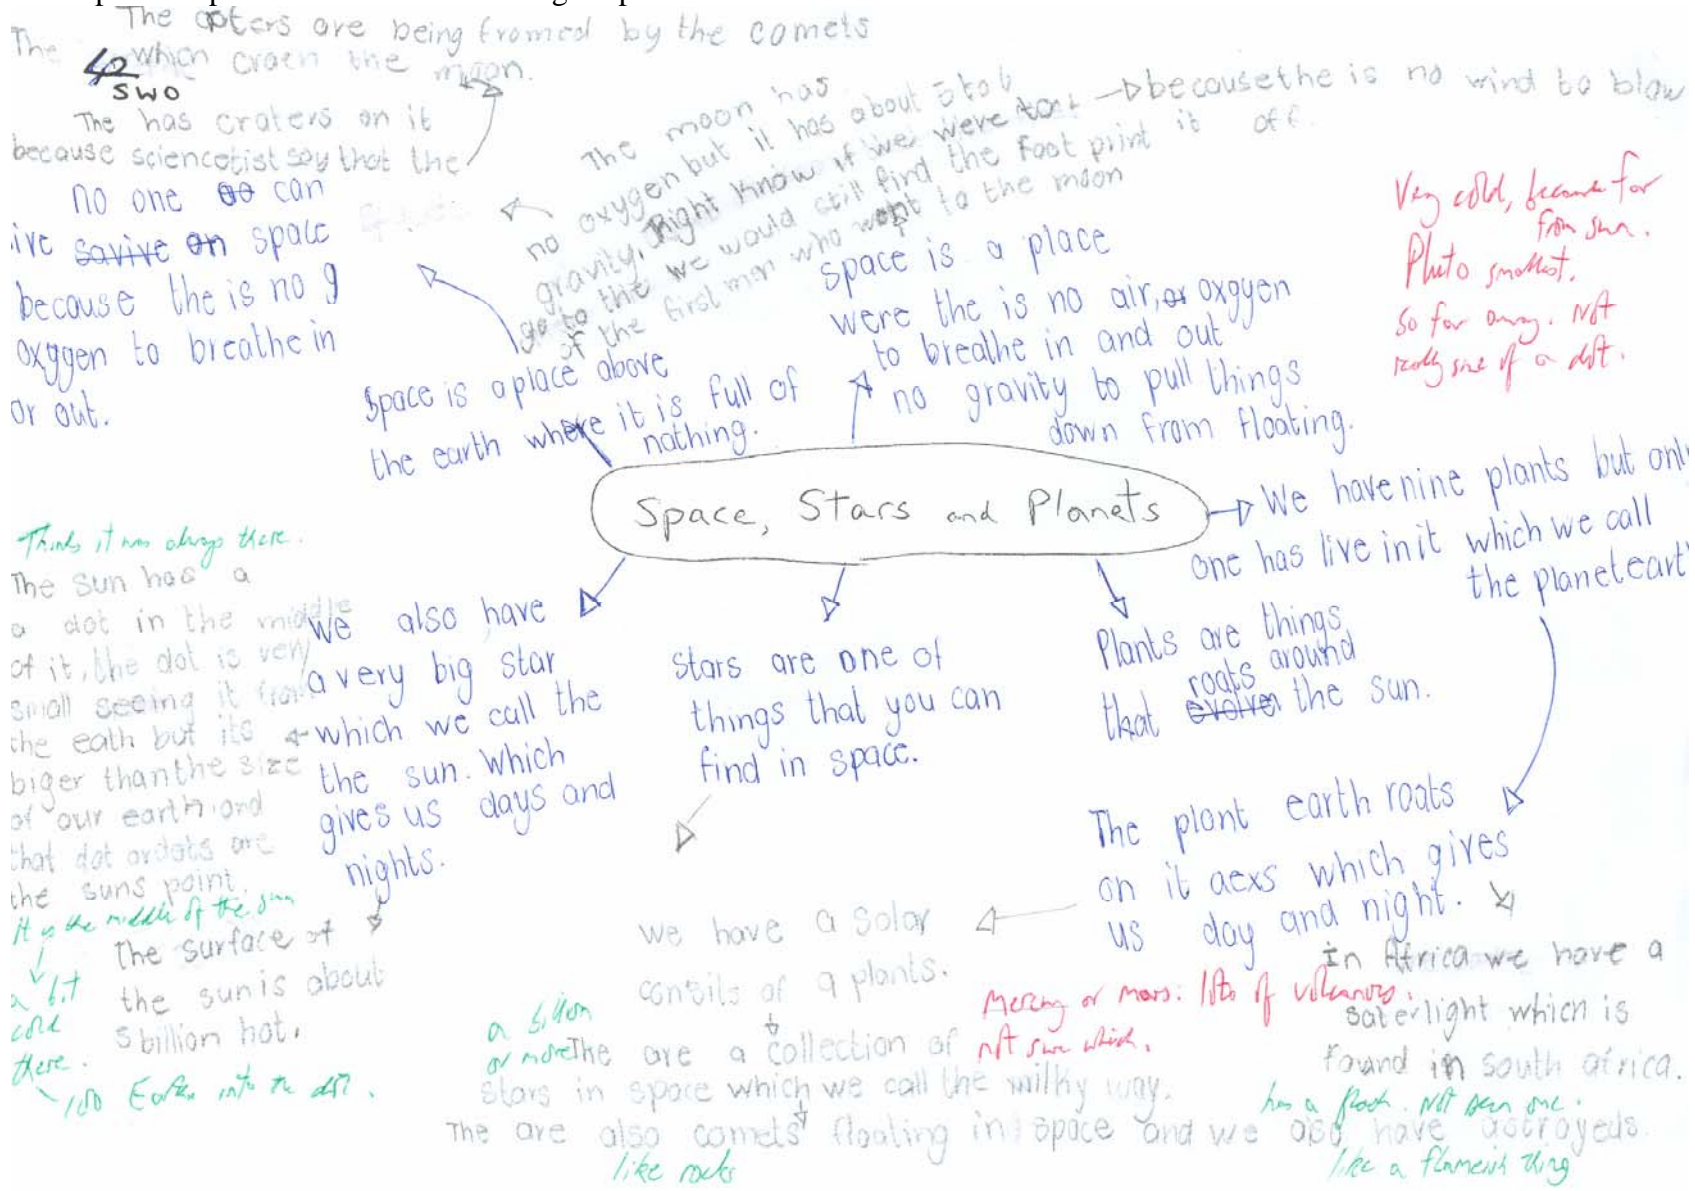 The craters are being fromed by the comets
The which craen the moon.
42
SWO
The has craters on it
because sciencetist say that the
no one can
ive savive on space
because the is no g
oxygen to breathe in
or out.
The moon has
no oxygen but it has about 5 to 6
gravity, Right know if we were to
go to the we would still find the foot print
of the first man who want to the moon
because the is no wind to blow
it off.
Very cold, because far
from sun.
Pluto smallest.
So far away. Not
really size of a dot.
Space is a place above
the earth where it is full of
nothing.
space is a place
were the is no air, or oxgyen
to breathe in and out
no gravity to pull things
down from floating.
Space, Stars and Planets
We have nine plants but only
one has live in it which we call
the planet eart
Thinks it was always there.
The sun has a
a dot in the middle
of it, the dot is very
small seeing it from
the eath but its
biger than the size
of our earth and
that dot or dots are
the suns point.
It is the middle of the sun
a bit
cold
there.
100 Earths into the dot.
We also have
a very big star
which we call the
the sun. Which
gives us days and
nights.
The surface of
the sun is about
5 billion hot.
Stars are one of
things that you can
find in space.
Plants are things
roats around
that evolver the sun.
The plant earth roats
on it aexs which gives
us day and night.
we have a solar
consils of 9 plants.
Mercury or Mars: lots of volcanoes.
not sure which.
In Africa we have a
saterlight which is
found in south africa.
has a flash. Not seen one.
a billion
or more
The are a collection of
stars in space which we call the milky way.
The are also comets floating in space and we also have astroyeds.
like rocks
like a flameish thing